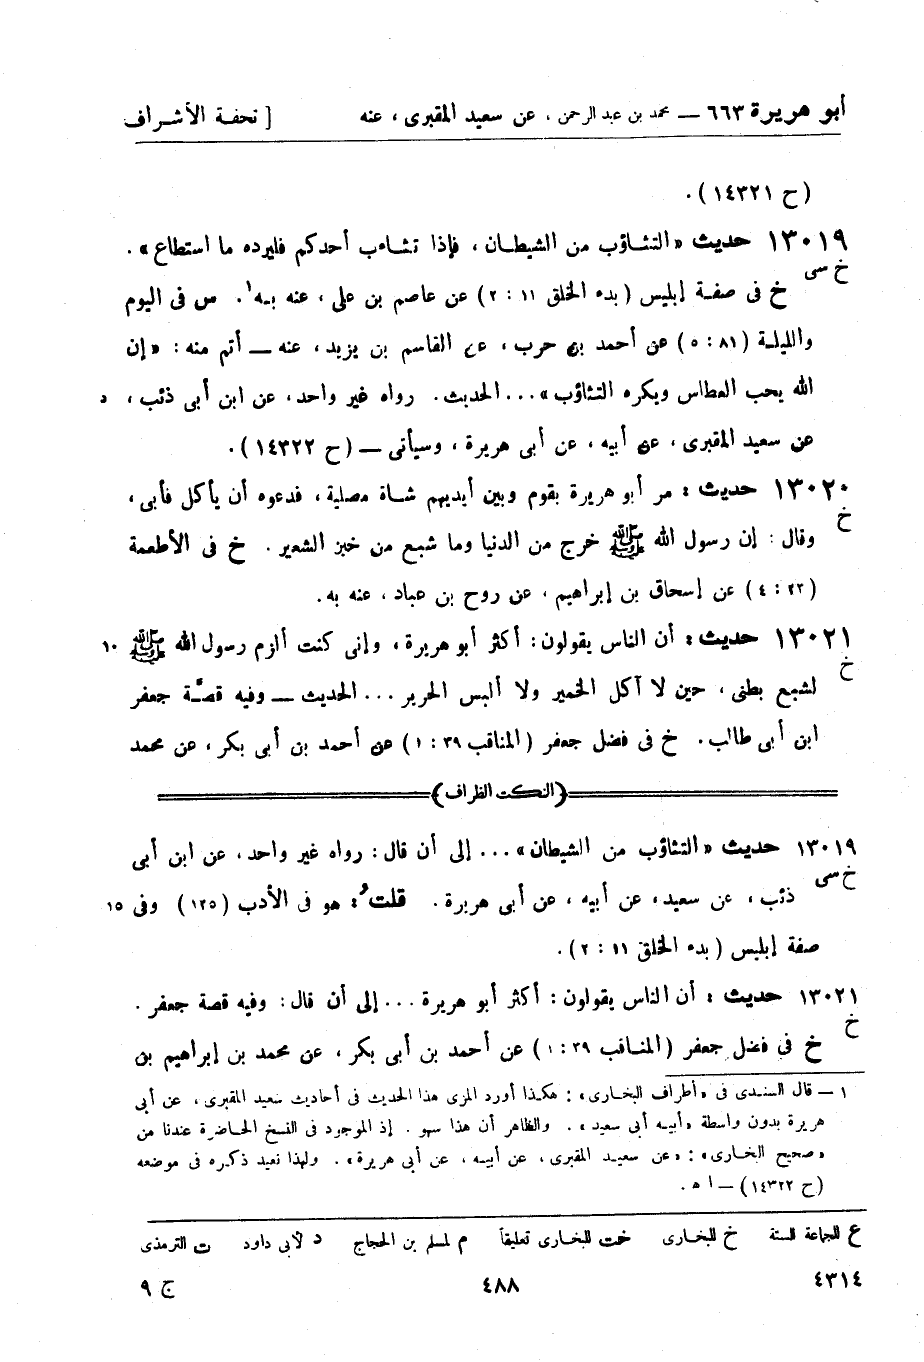 أبو هريرة ٦٦٣ ــ محمد بن عبد الرحمن ، عن سعيد المقبرى ، عنه [ تحفة الأشراف
(ح ١٤٣٢١) .
١٣٠١٩ حديث «التثاؤب من الشيطان ، فإذا تثاءب أحدكم فليرده ما استطاع» .
خ سى
خ فى صفة إبليس ( بدء الخلق ١١ : ٢) عن عاصم بن على ، عنه به١ . س فى اليوم
والليلة (٨١ : ٥) عن أحمد بن حرب ، عن القاسم بن يزيد ، عنه ــ أتم منه : « إن
الله يحب العطاس ويكره التثاؤب» ... الحديث . رواه غير واحد ، عن ابن أبى ذئب ، ٥
عن سعيد المقبرى ، عن أبيه ، عن أبى هريرة ، وسيأتى ــ (ح ١٤٣٢٢) .
١٣٠٢٠ حديث : مر أبو هريرة بقوم وبين أيديهم شاة مصلية ، فدعوه أن يأكل فأبى ،
خ
وقال : إن رسول الله ﷺ خرج من الدنيا وما شبع من خبز الشعير . خ فى الأطعمة
(٢٣ : ٤) عن إسحاق بن إبراهيم ، عن روح بن عباد ، عنه به .
١٣٠٢١ حديث : أن الناس يقولون : أكثر أبو هريرة ، وإنى كنت ألزم رسول الله ﷺ ١٠
خ
لشبع بطنى ، حين لا آكل الخمير ولا ألبس الحرير ... الحديث ــ وفيه قصّة جعفر
ابن أبى طالب . خ فى فضل جعفر ( المناقب ٣٩ : ١) عن أحمد بن أبى بكر ، عن محمد
(النكت الظراف)
١٣٠١٩ حديث «التثاؤب من الشيطان» ... إلى أن قال : رواه غير واحد ، عن ابن أبى
خ سى
ذئب ، عن سعيد ، عن أبيه ، عن أبى هريرة . قلتُ : هو فى الأدب (١٢٥) وفى ١٥
صفة إبليس ( بدء الخلق ١١ : ٢) .
١٣٠٢١ حديث : أن الناس يقولون : أكثر أبو هريرة ... إلى أن قال : وفيه قصة جعفر .
خ
خ في فضل جعفر ( المناقب ٣٩ : ١) عن أحمد بن أبى بكر ، عن محمد بن إبراهيم بن
١ ــ قال السندى فى «أطراف البخارى» : هكذا أورد المزى هذا الحديث فى أحاديث سعيد المقبرى ، عن أبى
هريرة بدون واسطة «أبيه أبى سعيد» . والظاهر أن هذا سهو . إذ الموجود فى النسخ الحاضرة عندنا من
«صحيح البخارى» : «عن سعيد المقبرى ، عن أبيه ، عن أبى هريرة» . ولهذا نعيد ذكره فى موضعه
(ح ١٤٣٢٢) ــ ا ه .
ع للجماعة الستة خ للبخارى خت للبخارى تعليقاً م لمسلم بن الحجاج د لأبى داود ت الترمذى
٤٣١٤ ٤٨٨ ج ٩